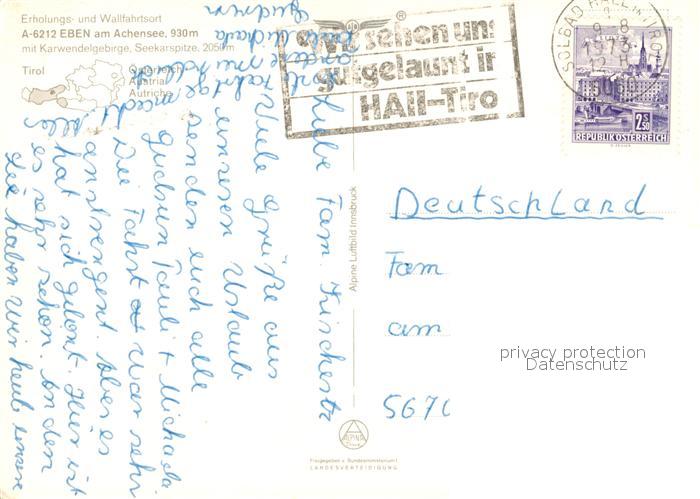 Erholungs- und Wallfahrtsort
A-6212 EBEN am Achensee, 930m
mit Karwendelgebirge, Seekarspitze, 2050m
Tirol
Österreich
Austria
Autriche
Wir sehen uns
gutgelaunt in
HAll-Tiro
SOLBAD HALL IN TIROL
9.8
1973
2.50
REPUBLIK ÖSTERREICH
Liebe Fam.
Viele Grüße aus
unseren Urlaub
senden euch alle
Gudrun Pauli + Michaela
Die Fahrt war sehr
anstrengent. Aber es
hat sich gelont. Hier ist
es sehr schön. An den
See haben wir heute unsere
Alpine Luftbild Innsbruck
Deutschland
Fam
am
567
privacy protection
Datenschutz
ALPINE
Freigegeben v. Bundesministerium f.
LANDESVERTEIDIGUNG